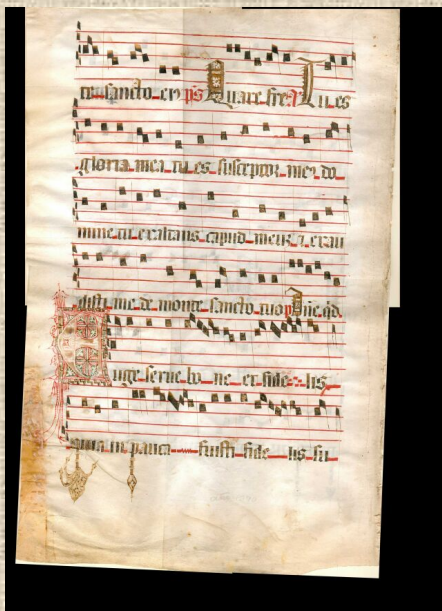 to sancto ei ps Quare fre a Tu es
gloria mea tu es susceptor meus do
mine tu exaltans capud meuz et exau
disti me de monte sancto tuo p Dne qd
Euge serue bo ne et fide lis
quia in pauca fuisti fide lis su